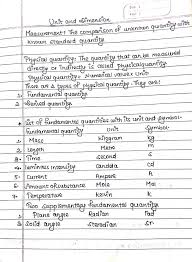 Unit and dimension
Measurement: The comparison of unknown quantity with
known standard quantity.
Physical quantity: The quantity that can be measured
directly or indirectly is called physical quantity.
Physical quantity = Numerical value x Unit
There are 2 types of physical quantity. They are:
1. Fundamental quantity
2. Derived quantity
* List of fundamental quantities with its unit and symbol:
Fundamental quantity Unit Symbol
1. Mass kilogram kg
2. Length Metre m
3. Time second s
4. Luminous intensity Candela cd
5. Current Ampere A
6. Amount of substance Mole Mol
7. Temperature kelvin K
Two supplementary fundamental quantity
1. Plane angle Radian rad
2. Solid angle Steradian Sr